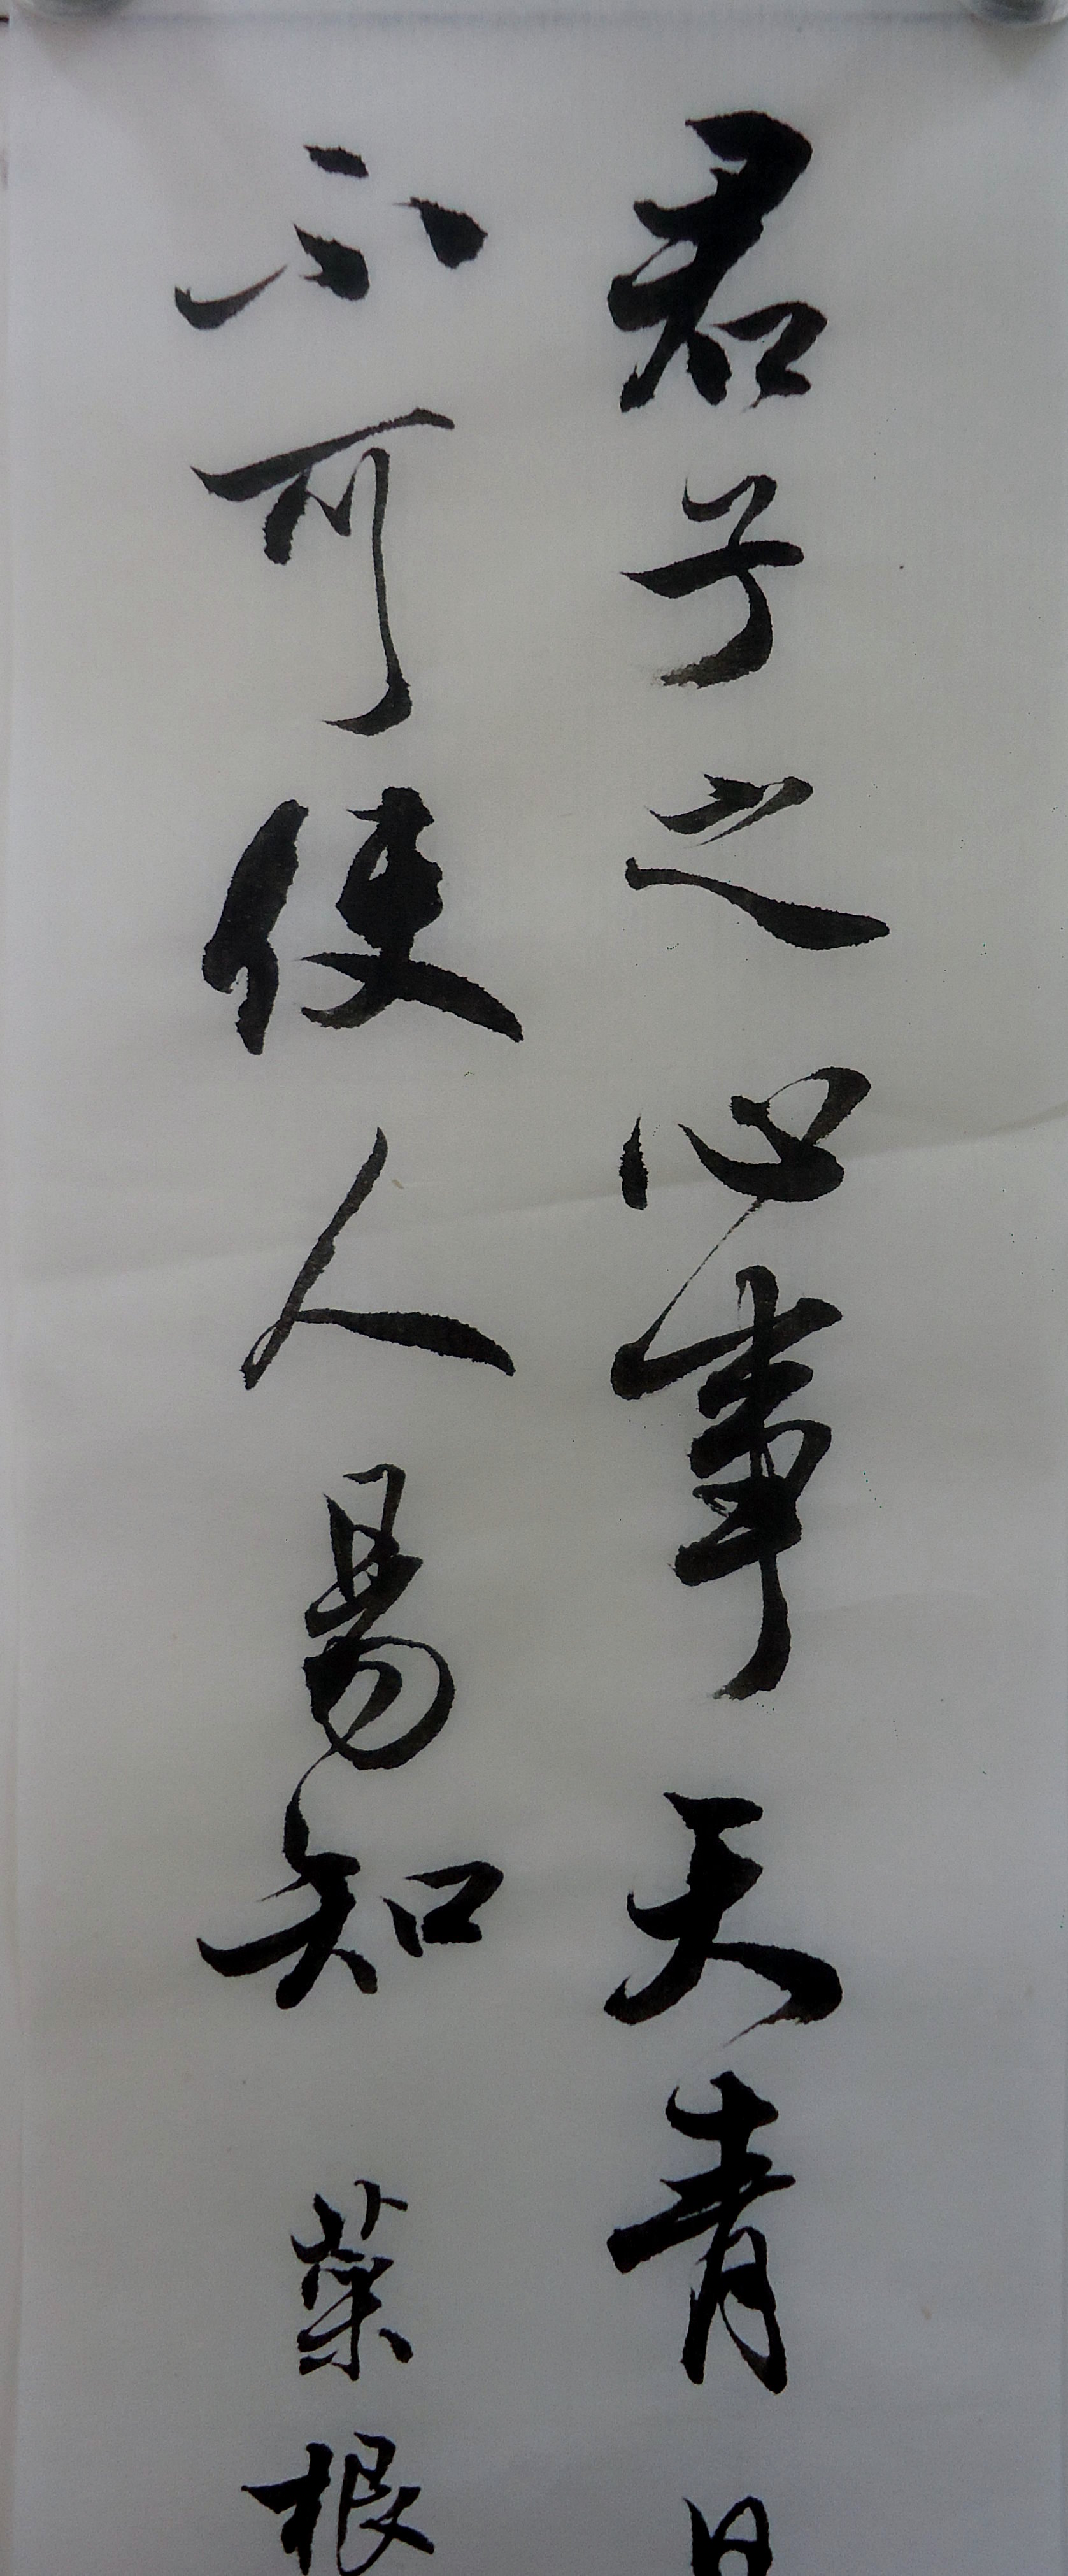 君子之心事天青日
不可使人易知菜根